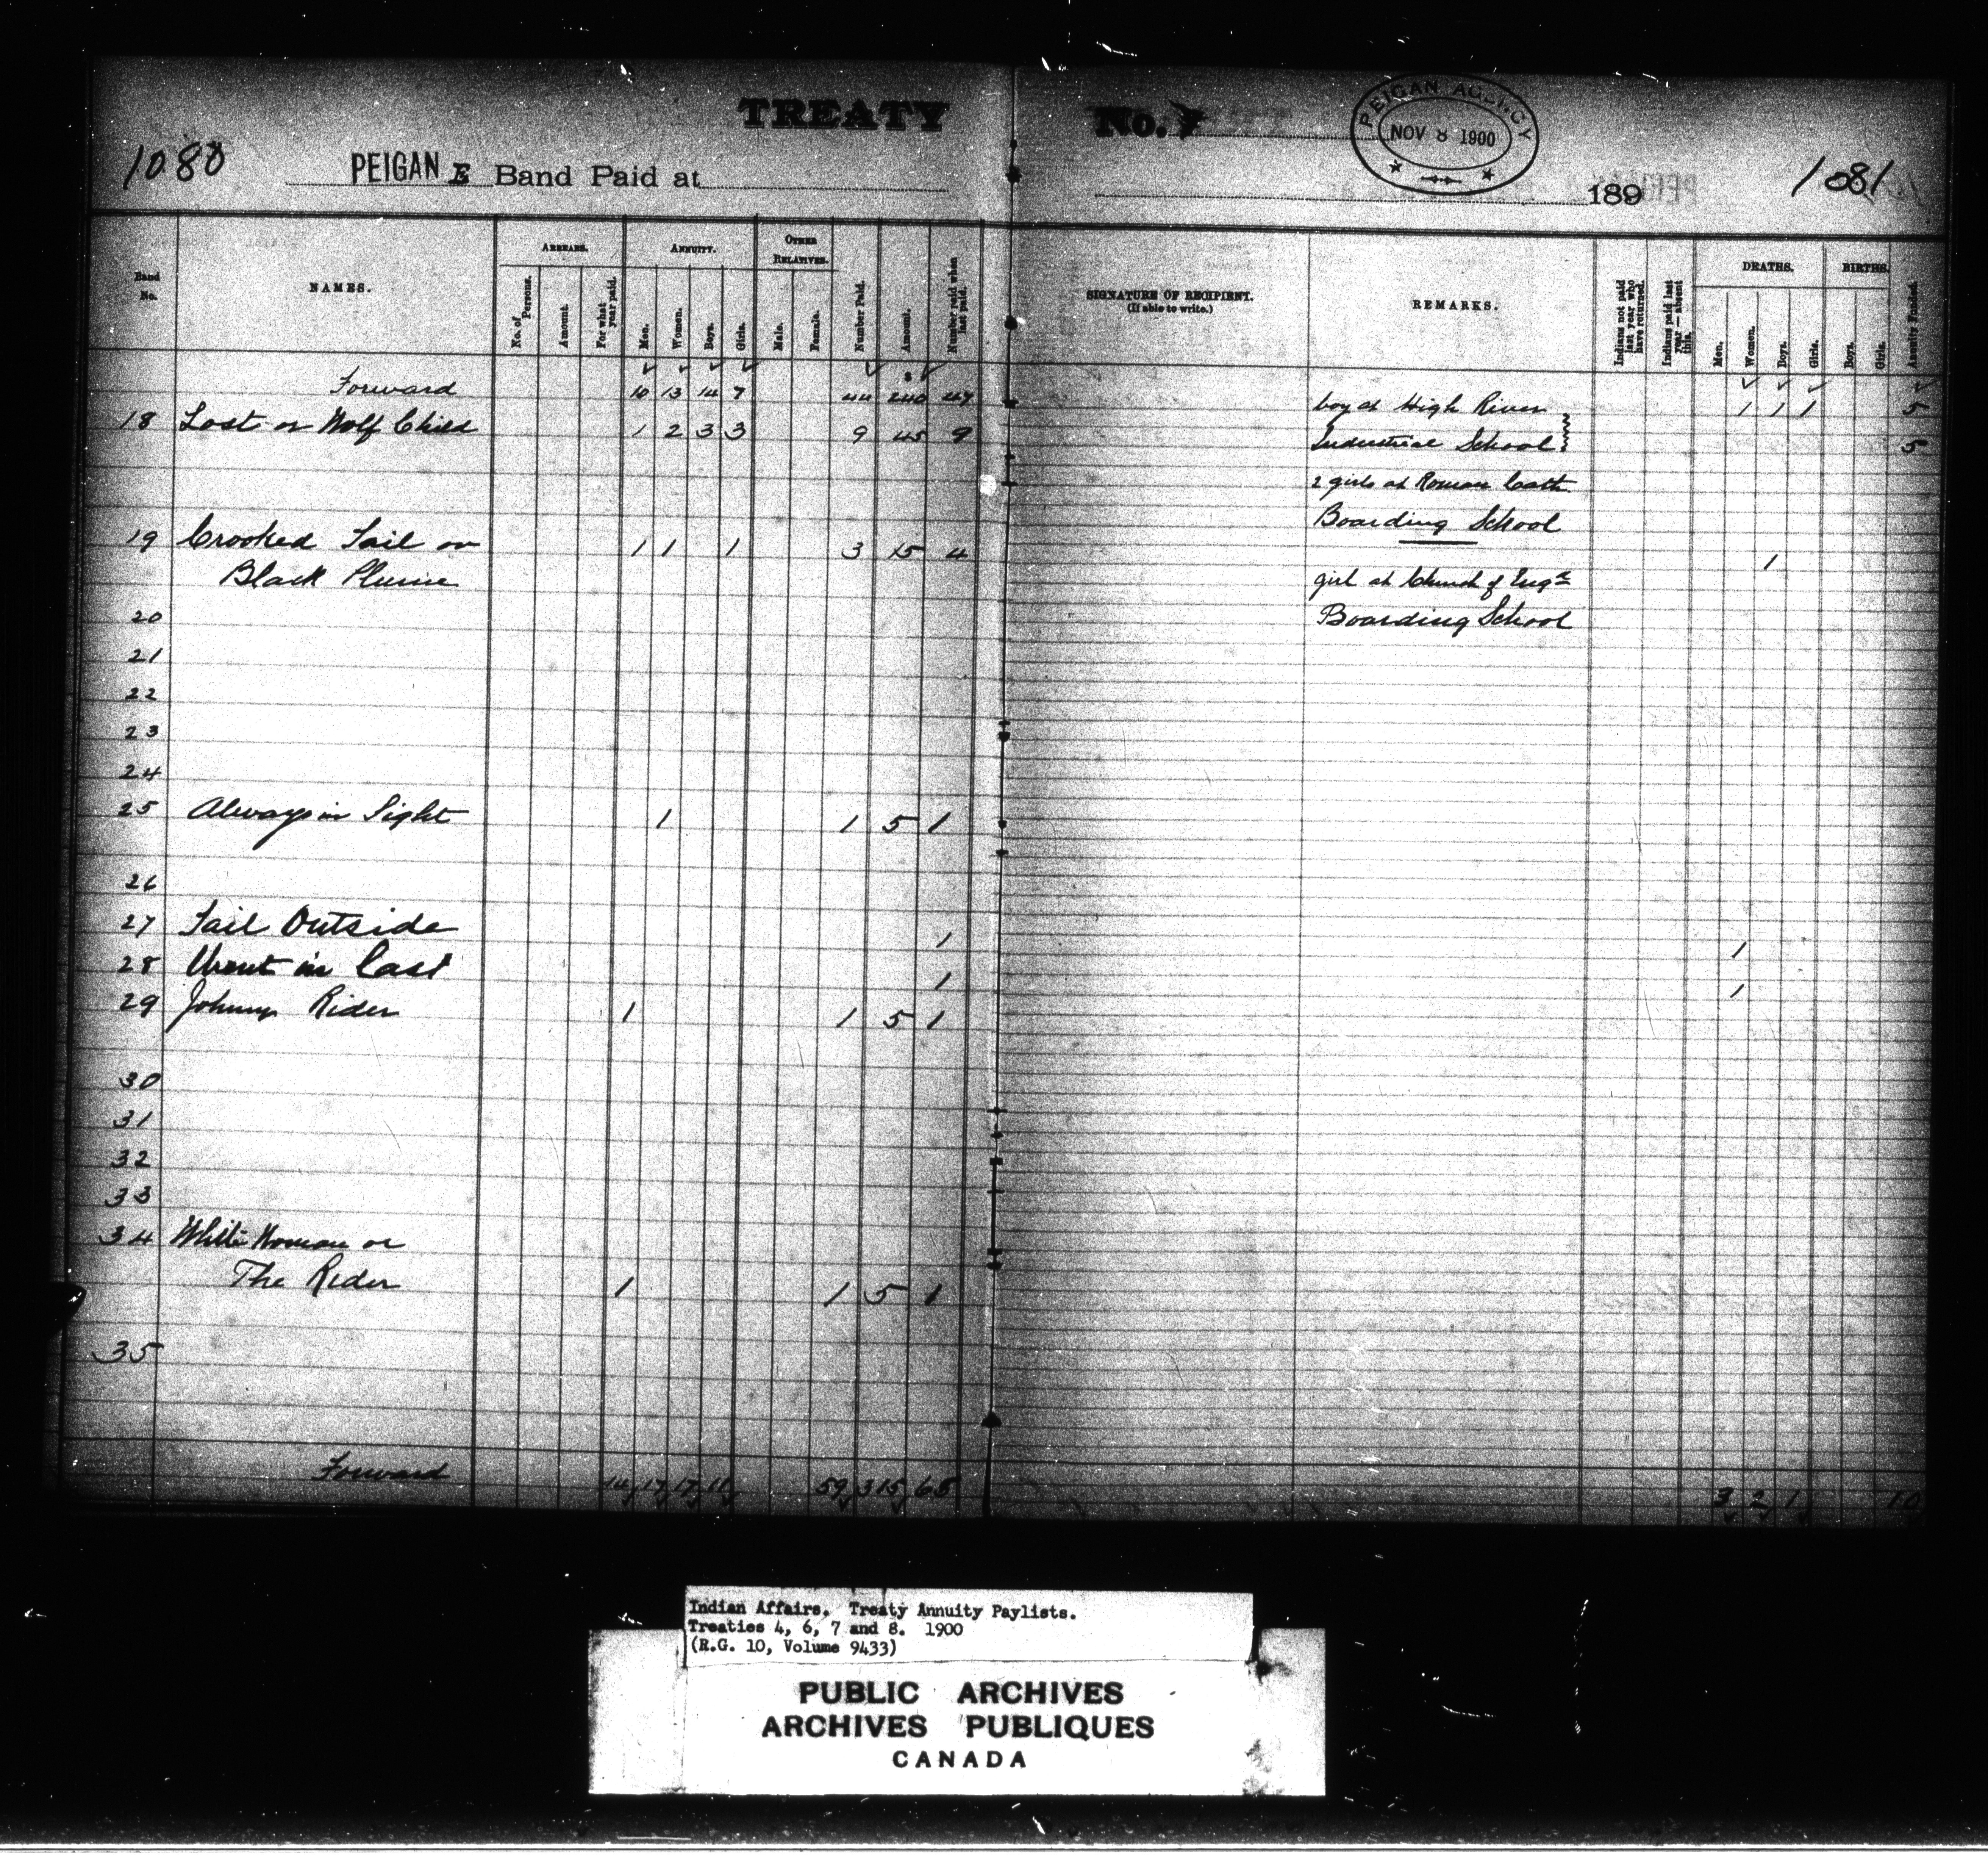 TREATY No. 7
PEIGAN AGENCY
NOV 8 1900
1080 PEIGAN E Band Paid at 189 1081
Band No.
NAMES.
ARREARS.
No. of Persons.
Amount.
For what year paid.
ANNUITY.
Men.
Women.
Boys.
Girls.
OTHER RELATIVES.
Male.
Female.
Number Paid.
Amount.
Number paid when last paid.
SIGNATURE OF RECIPIENT.
(If able to write.)
REMARKS.
Indians not paid last year who have returned.
Indians paid last year — absent this.
DEATHS.
Men.
Women.
Boys.
Girls.
BIRTHS.
Boys.
Girls.
Annuity Funded.
Forward 10 13 14 7 44 240 47 boy at High River 1 1 1 5
18 Lost or Wolf Child 1 2 3 3 9 45 9 Industrial School 5
2 girls at Roman Cath
Boarding School
19 Crooked Tail or 1 1 1 3 15 4 1
Black Plume girl at Church of Engd
20 Boarding School
21
22
23
24
25 Always in Sight 1 1 5 1
26
27 Tail Outside 1 1
28 Went in Last 1 1
29 Johnny Rider 1 1 5 1
30
31
32
33
34 White Woman or
The Rider 1 1 5 1
35
Forward 14 17 17 11 59 315 65 3 2 1 10
Indian Affairs. Treaty Annuity Paylists.
Treaties 4, 6, 7 and 8. 1900
(R.G. 10, Volume 9433)
PUBLIC ARCHIVES
ARCHIVES PUBLIQUES
CANADA